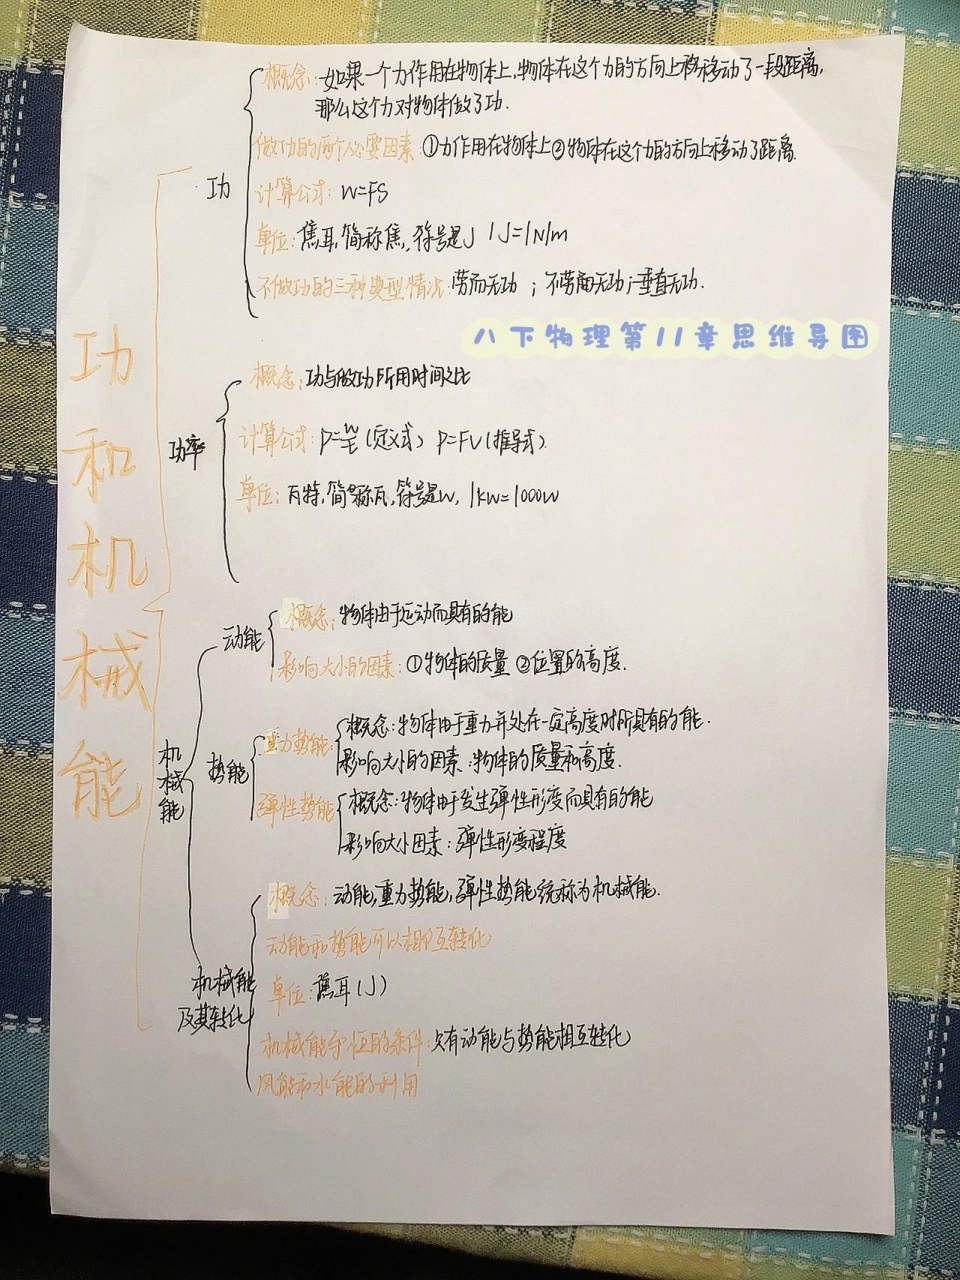 功和机械能
功
概念：如果一个力作用在物体上，物体在这个力的方向上移动了一段距离，
那么这个力对物体做了功.
做功的两个必要因素：①力作用在物体上②物体在这个力的方向上移动了距离.
计算公式：W=FS
单位：焦耳，简称焦，符号是J 1J=1N/m
不做功的三种类型情况：劳而无功；不劳而无功；垂直无功.
八下物理第11章思维导图
功率
概念：功与做功所用时间之比
计算公式：P=W/t（定义式） P=FV（推导式）
单位：瓦特，简称瓦，符号是W，1KW=1000W
机械能
动能
概念：物体由于运动而具有的能
影响大小的因素：①物体的质量 ②位置的高度.
势能
重力势能：
概念：物体由于重力并处在一定高度时所具有的能.
影响大小的因素：物体的质量和高度.
弹性势能
概念：物体由于发生弹性形变而具有的能
影响大小因素：弹性形变程度
机械能
及其转化
概念：动能，重力势能，弹性势能统称为机械能.
动能和势能可以相互转化
单位：焦耳（J）
机械能守恒的条件：只有动能与势能相互转化
风能和水能的利用